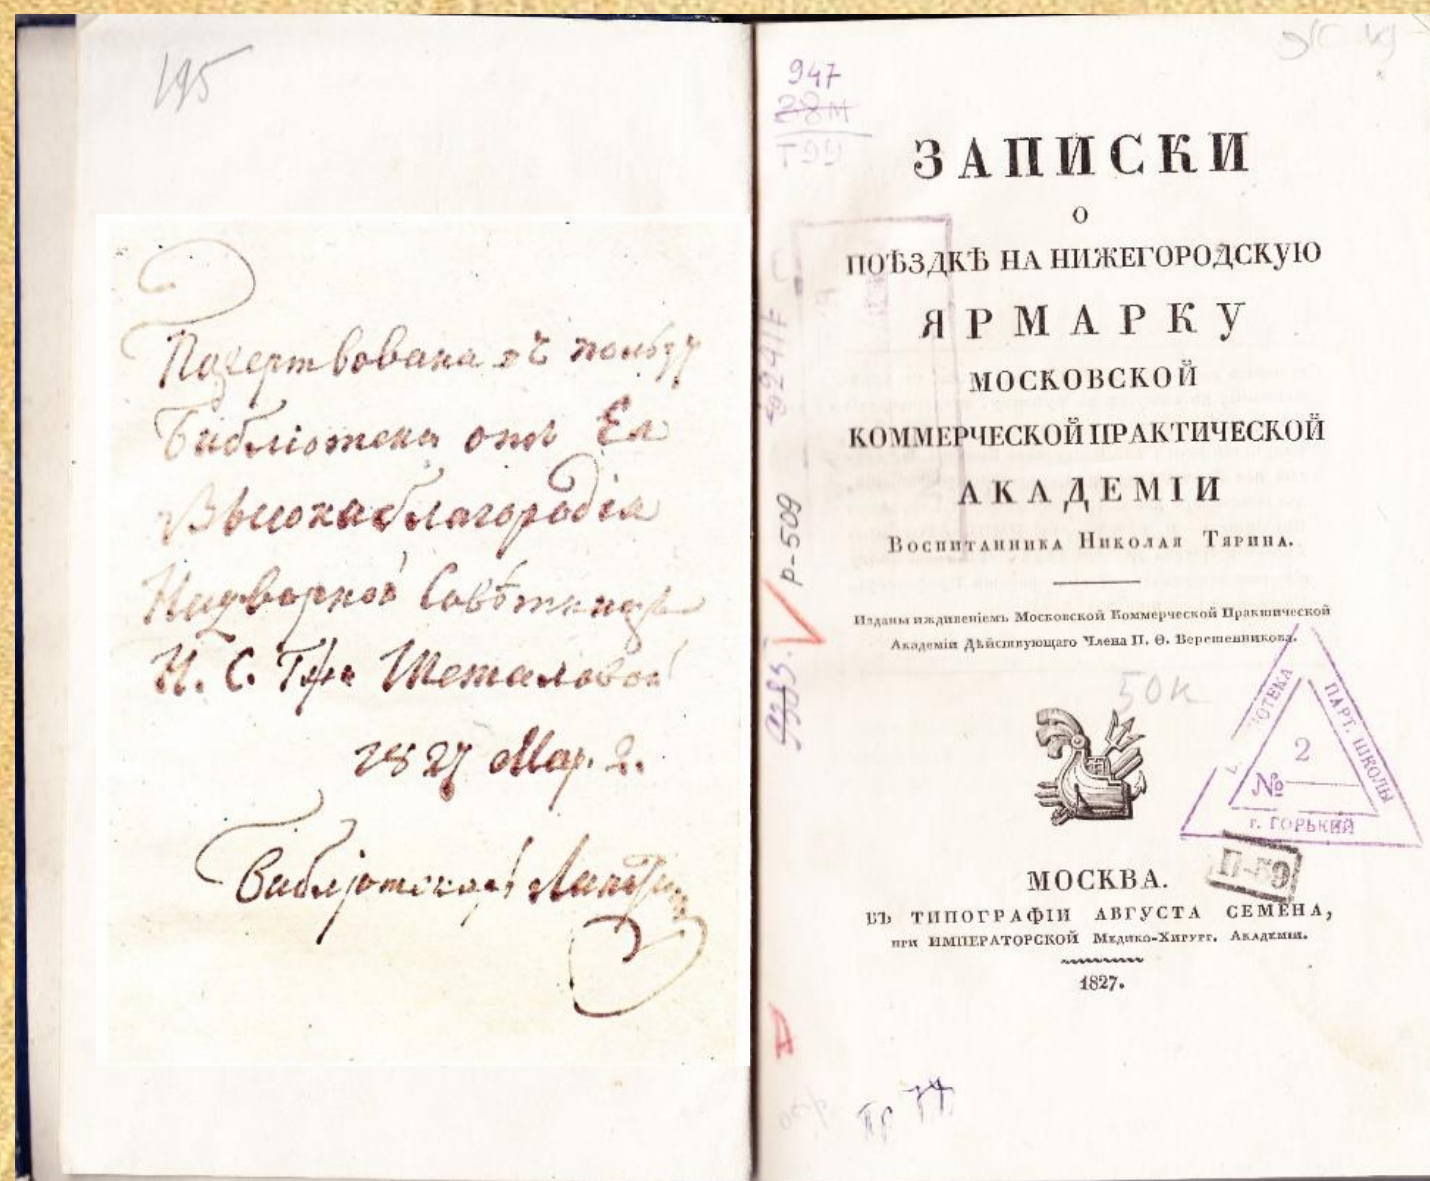 195
Пожертвована въ пользу
Библіотеки отъ Ея
Высокаблагородія
Надворной Совѣтницы
Н. С. Шеталовой
1827 Мар. 2.
Библіотекарь
947
28м
Т99
ЗАПИСКИ
О
ПОѢЗДКѢ НА НИЖЕГОРОДСКУЮ
ЯРМАРКУ
МОСКОВСКОЙ
КОММЕРЧЕСКОЙ ПРАКТИЧЕСКОЙ
АКАДЕМІИ
Воспитанника Николая Тярина.
Изданы иждивеніемъ Московской Коммерческой Практической
Академіи Дѣйствующаго Члена П. Ѳ. Верещенникова.
р-509
50к
ПАРТ. ШКОЛЫ
2
№
г. ГОРЬКИЙ
П-59
МОСКВА.
ВЪ ТИПОГРАФІИ АВГУСТА СЕМЕНА,
при ИМПЕРАТОРСКОЙ Медико-Хирург. Академіи.
1827.
А